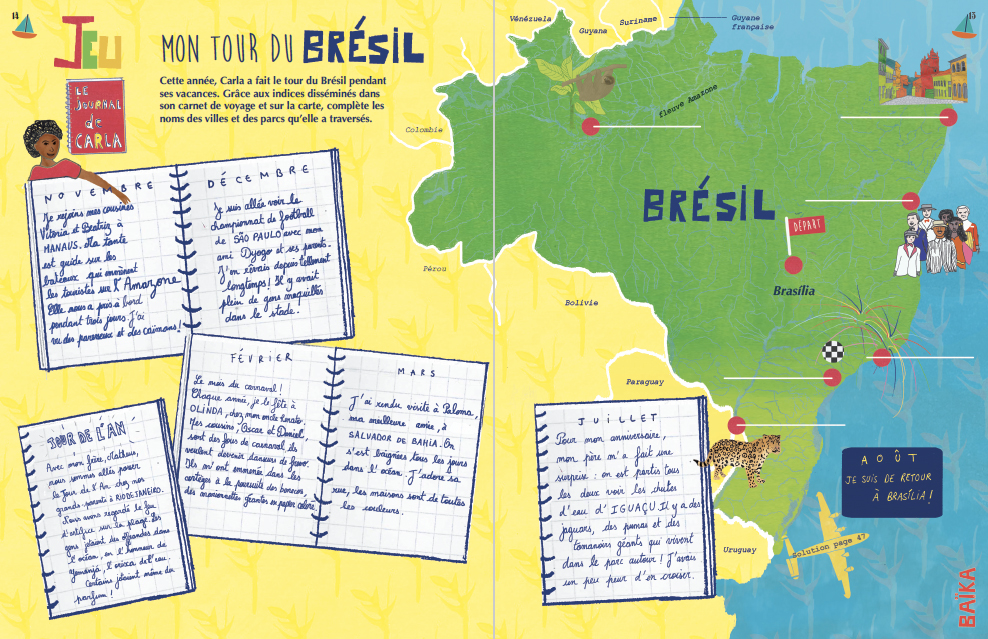 14
JEU
MON TOUR DU BRÉSIL
Cette année, Carla a fait le tour du Brésil pendant
ses vacances. Grâce aux indices disséminés dans
son carnet de voyage et sur la carte, complète les
noms des villes et des parcs qu'elle a traversés.
LE
JOURNAL
de
CARLA
NOVEMBRE
Je rejoins mes cousines
Vitoria et Beatriz à
MANAUS. Ma tante
est guide sur les
bateaux qui emmènent
les touristes sur l'Amazone
Elle nous a pris à bord
pendant trois jours J'ai
vu des paresseux et des caïmans!
DÉCEMBRE
Je suis allée voir le
championnat de football
de SÃO PAULO avec mon
ami Dyogo et ses parents.
J'en rêvais depuis tellement
longtemps! Il y avait
plein de gens maquillés
dans le stade.
JOUR DE L'AN
Avec mon frère, Matheus,
nous sommes allés passer
le Jour de l'An chez nos
grands-parents à RIO DE JANEIRO.
Nous avons regardé le feu
d'artifice sur la plage. Les
gens jetaient des offrandes dans
l'océan, en l'honneur de
Yemanjá, l'orixa de l'eau.
Certains jetaient même du
parfum!
FÉVRIER
Le mois du carnaval!
Chaque année, je le fête à
OLINDA, chez mon oncle Renato.
Mes cousins, Oscar et Daniel,
sont des fous de carnaval, ils
veulent devenir danseurs de frevo.
Ils m'ont emmenée dans les
cortèges à la poursuite des bonecos,
des marionnettes géantes en papier coloré.
MARS
J'ai rendu visite à Paloma,
ma meilleure amie, à
SALVADOR DE BAHIA. On
s'est baignées tous les jours
dans l'océan. J'adore sa
rue, les maisons sont de toutes
les couleurs.
15
Vénézuela
Guyana
Suriname
Guyane
française
Colombie
fleuve Amazone
BRÉSIL
DÉPART
Brasília
Pérou
Bolivie
Paraguay
JUILLET
Pour mon anniversaire,
mon père m'a fait une
surprise : on est partis tous
les deux voir les chutes
d'eau d'IGUAÇU. Il y a des
jaguars, des pumas et des
tamanoirs géants qui vivent
dans le parc autour! J'avais
un peu peur d'en croiser.
AOÛT
JE SUIS DE RETOUR
À BRASÍLIA!
Uruguay
solution page 47
BAÏKA